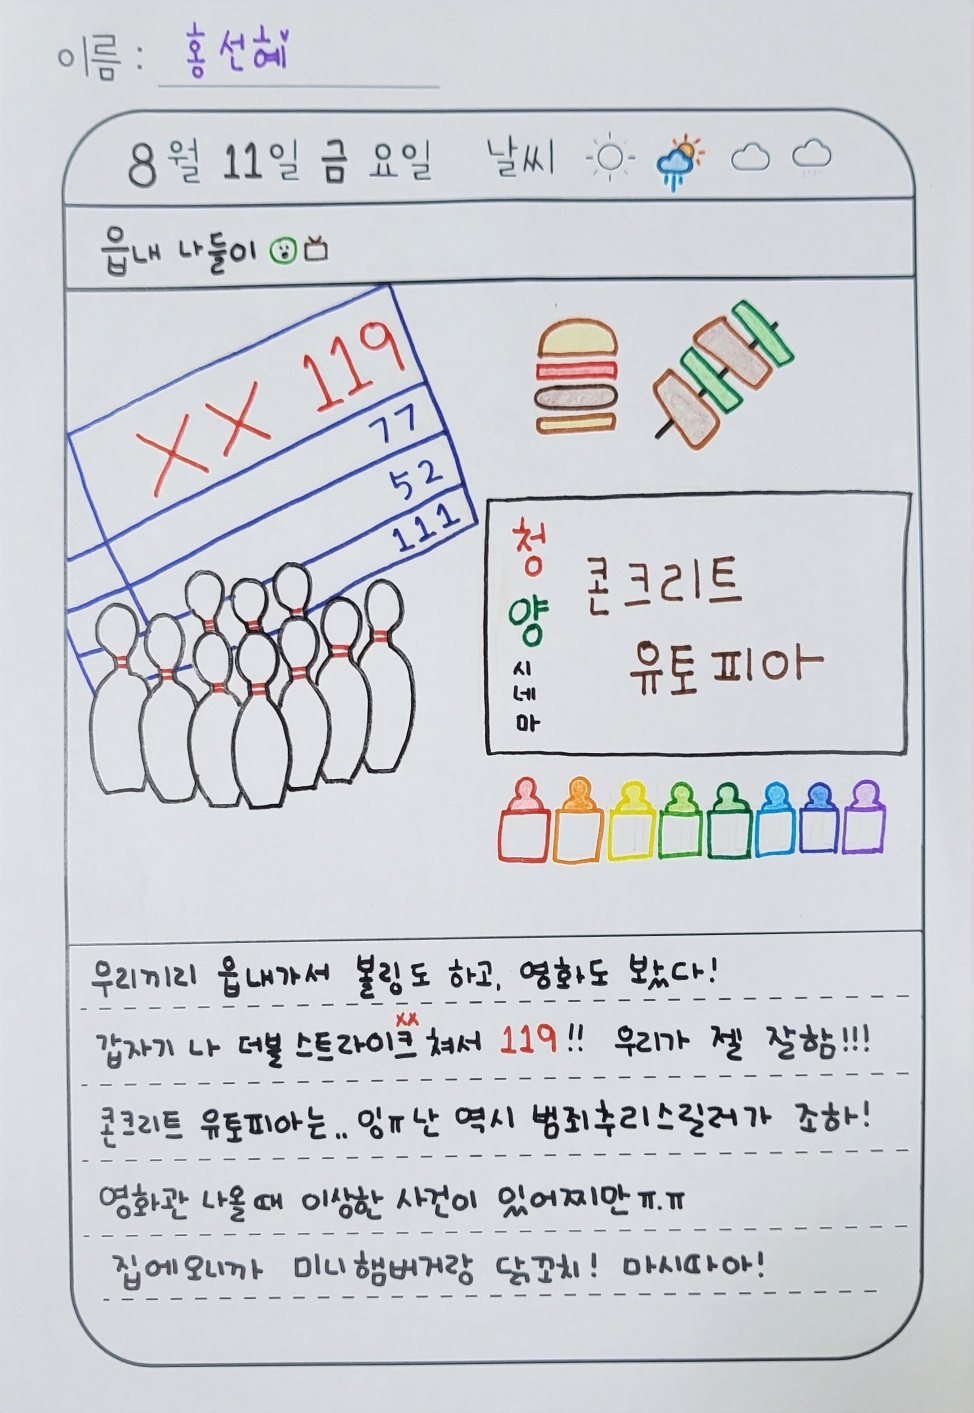 이름 : 홍선혜
8월 11일 금 요일 날씨
읍내 나들이
XX 119
77
52
111
청양시네마
콘크리트
유토피아
우리끼리 읍내가서 볼링도 하고, 영화도 봤다!
xx
갑자기 나 더블 스트라이크 쳐서 119!! 우리가 젤 잘함!!!
콘크리트 유토피아는.. 잉ㅠ난 역시 범죄추리스릴러가 조하!
영화관 나올때 이상한 사건이 있어찌만ㅠ.ㅠ
집에오니까 미니햄버거랑 닭꼬치! 마시따아!